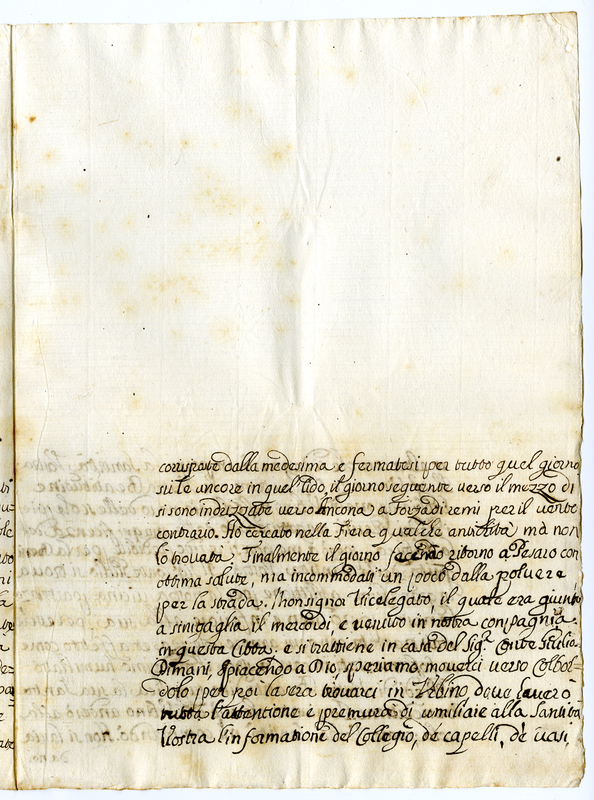 corrisposte dalla medesima e fermatesi per tutto quel giorno
su le ancore in quel lido, il giorno seguente verso il mezzo di
si sono indrizzate verso Ancona a forza di remi per il vento
contrario. Ho cercato nella Fiera qualche antichità mà non
hò trovata. Finalmente il giorno facendo ritorno a Pesaro con
ottima salute, mà incommodati un poco dalla polvere
per la strada. Monsignor Vicelegato, il quale era giunto
a sinigaglia il mercordi, e venuto in nostra compagnia
in questa Città: e si trattiene in casa del Sig.r Conte Giulio
Dimani, piacendo a Dio, speriamo moverci verso Colbor=
dolo per poi la sera trovarci in Urbino dove haverò
tutta l'attentione e premura di umiliare alla Santità
Vostra l'informatione del Collegio, de capelli, de vasi,